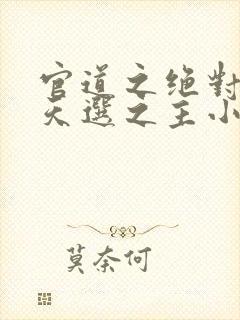 官道之绝對
天選之主小
莫奈何